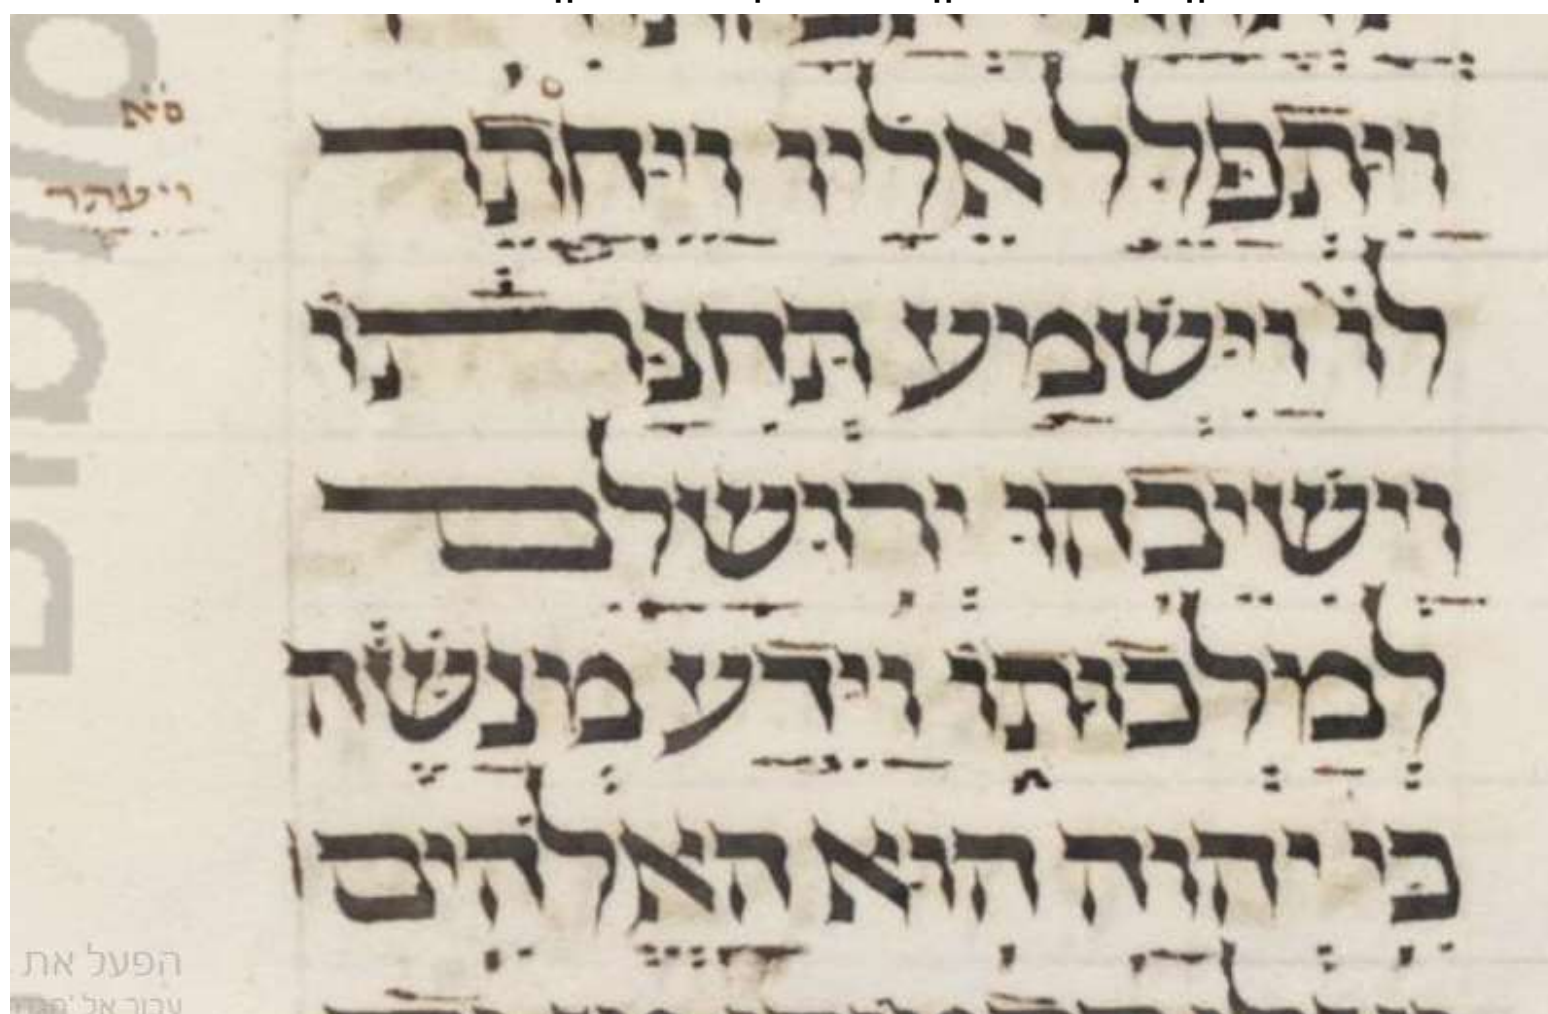 ס״א
ויתפלל אליו ויחתר
ויעתר
לו וישמע תחנתו
וישיבהו ירושלם
למלכותו וידע מנשה
כי יהוה הוא האלהים
הפעל את